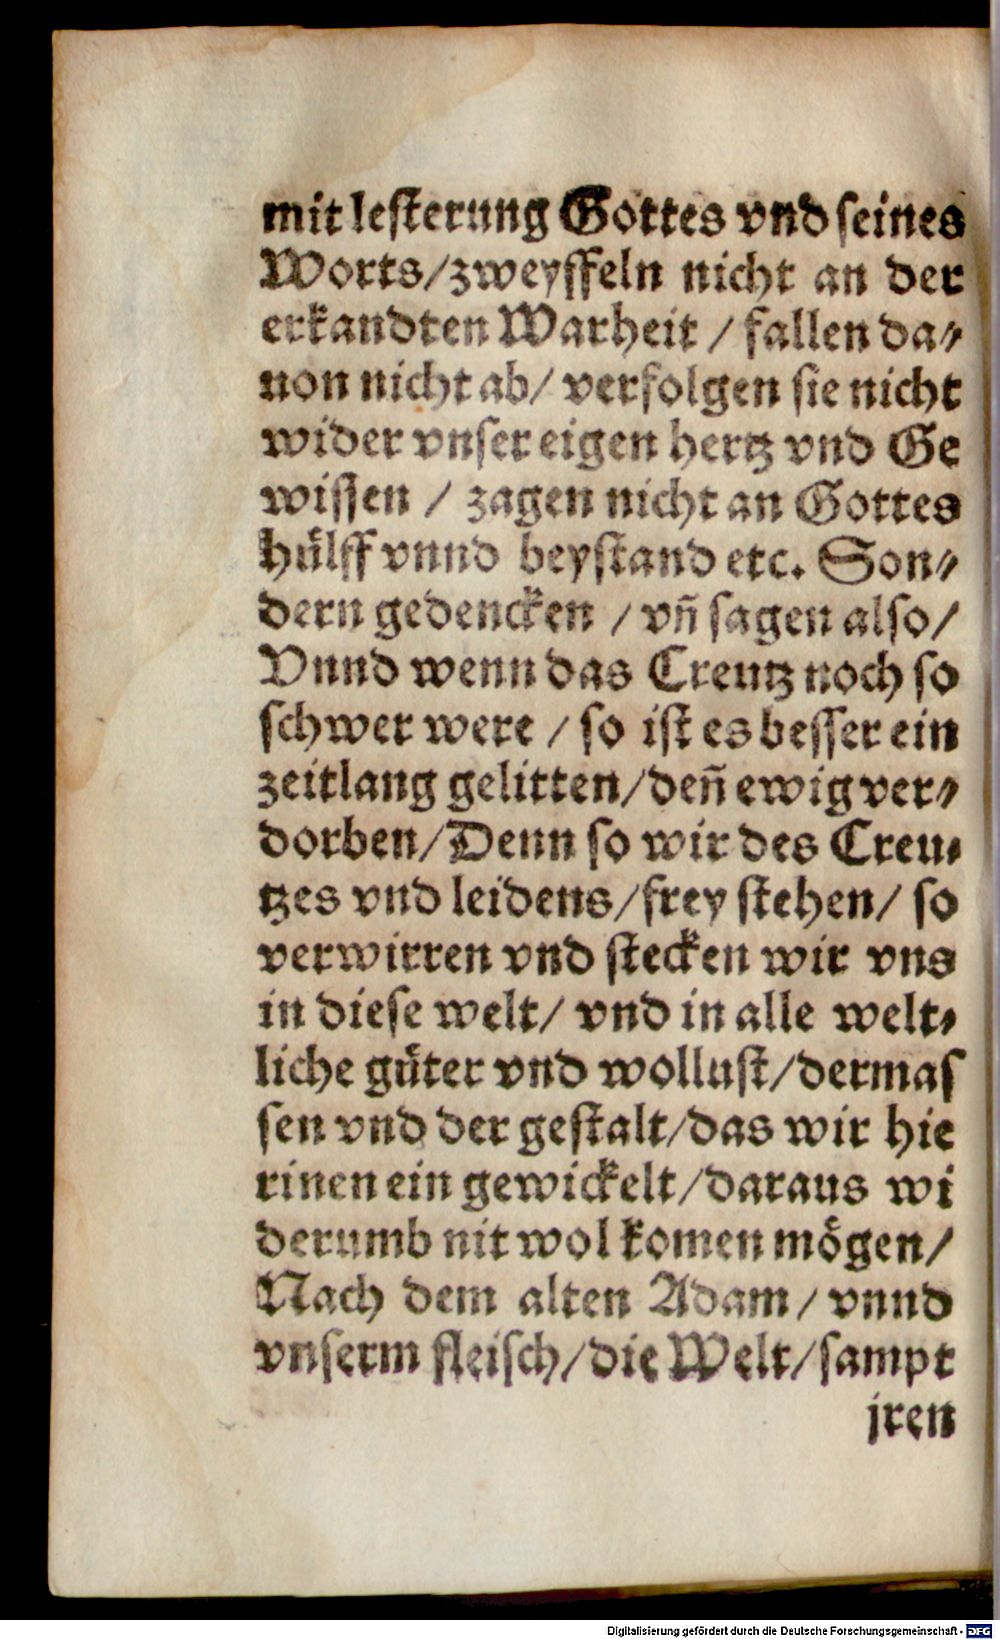 mit lesterung Gottes vnd seines
Worts/zweyffeln nicht an der
erkandten Warheit / fallen da⸗
uon nicht ab/ verfolgen sie nicht
wider vnser eigen hertz vnd Ge
wissen / zagen nicht an Gottes
hülff vnnd beystand etc. Son⸗
dern gedencken / vñ sagen also/
Vnnd wenn das Creutz noch so
schwer were / so ist es besser ein
zeitlang gelitten/deñ ewig ver⸗
dorben/Denn so wir des Creu⸗
tzes vnd leidens/frey stehen/ so
verwirren vnd stecken wir vns
in diese welt/ vnd in alle welt⸗
liche güter vnd wollust/dermas
sen vnd der gestalt/das wir hie
rinen ein gewickelt/daraus wi
derumb nit wol komen mögen/
Nach dem alten Adam/ vnnd
vnserm fleisch/die Welt/sampt
jren
Digitalisierung gefördert durch die Deutsche Forschungsgemeinschaft - DFG